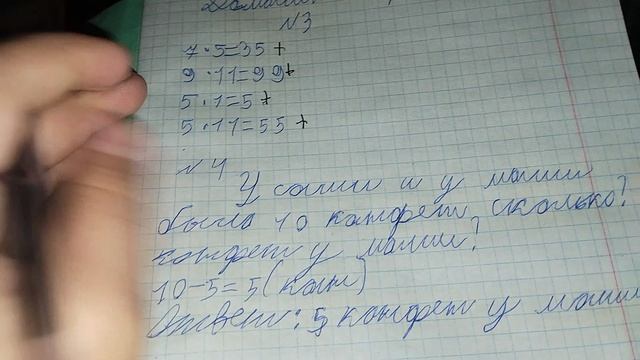 №3
7·5=35 +
9·11=99+
5·1=5 +
5·11=55 +
№4
У саши и у маши
было 10 конфет сколько?
конфет у маши?
10-5=5(кон)
Ответ: 5 конфет у маши